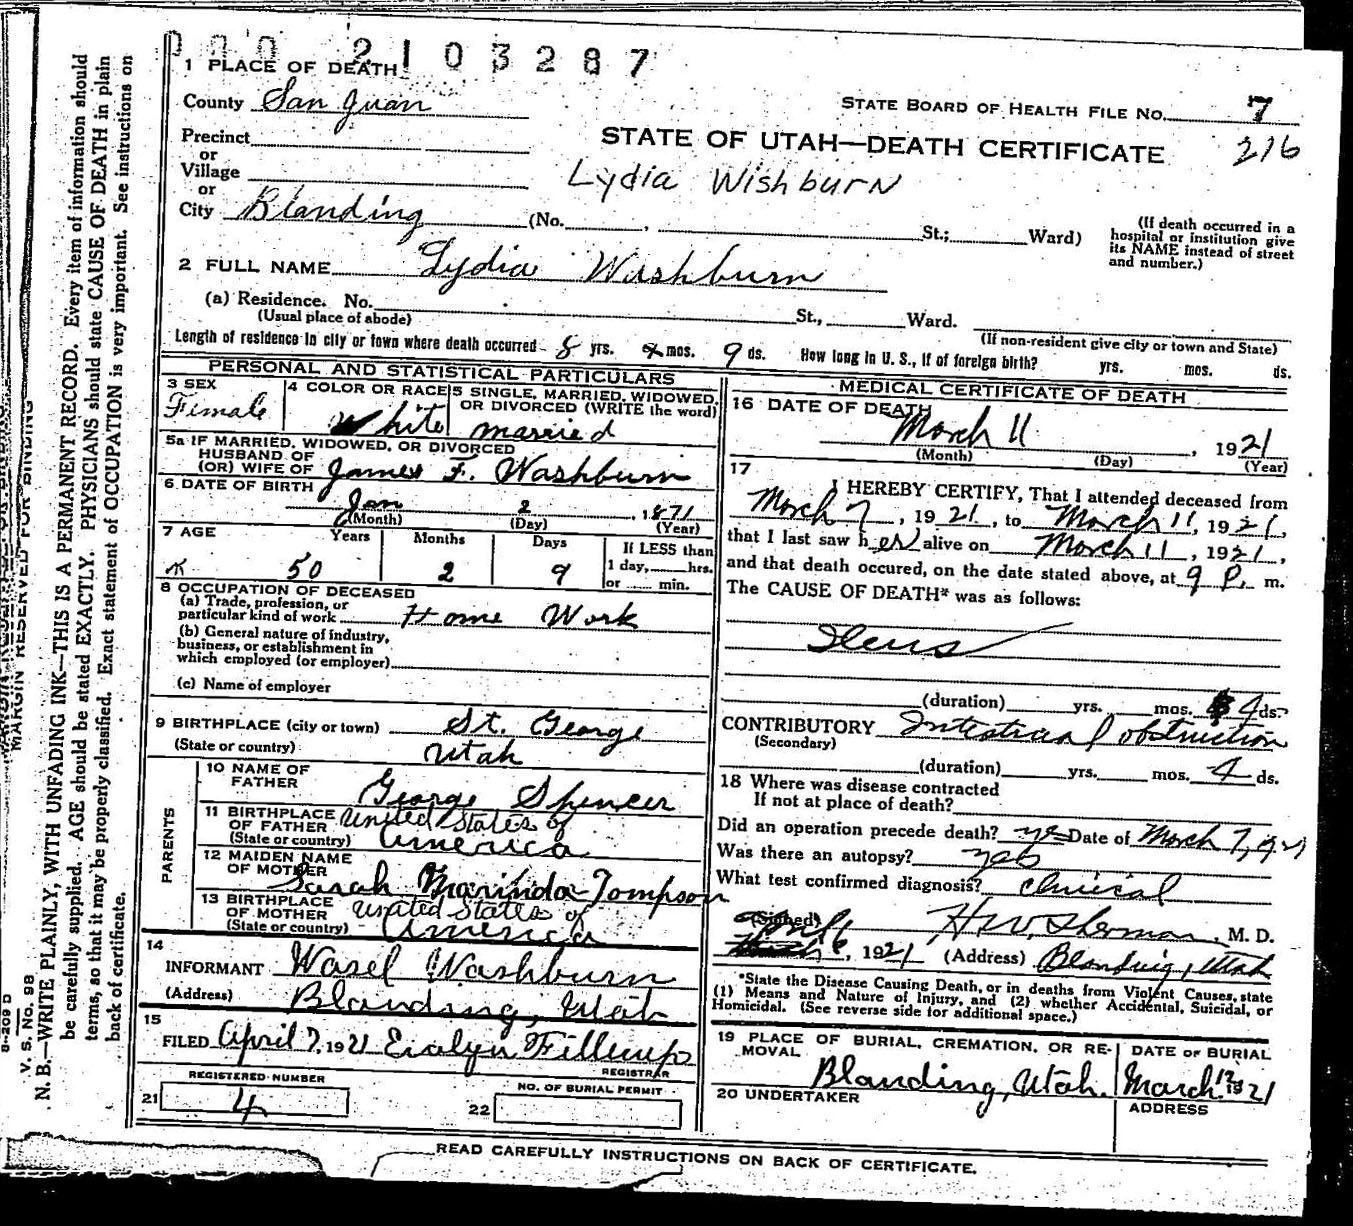 0 0 0 2 1 0 3 2 8 7
1 PLACE OF DEATH
County San Juan
STATE BOARD OF HEALTH FILE No. 7
216
Precinct
or
Village
or
City Blanding (No. , St.; Ward)
STATE OF UTAH—DEATH CERTIFICATE
Lydia Wishburn
(If death occurred in a
hospital or institution give
its NAME instead of street
and number.)
2 FULL NAME Lydia Washburn
(a) Residence. No. St., Ward.
(Usual place of abode)
(If non-resident give city or town and State)
Length of residence in city or town where death occurred 8 yrs. mos. 9 ds. How long in U. S., if of foreign birth? yrs. mos. ds.
PERSONAL AND STATISTICAL PARTICULARS
3 SEX
Female
4 COLOR OR RACE
White
5 SINGLE, MARRIED, WIDOWED,
OR DIVORCED (WRITE the word)
married
5a IF MARRIED, WIDOWED, OR DIVORCED
HUSBAND OF
(OR) WIFE OF James F. Washburn
6 DATE OF BIRTH
Jan 2, 1871
(Month) (Day) (Year)
7 AGE Years Months Days If LESS than
1 day, hrs.
or min.
50 2 9
8 OCCUPATION OF DECEASED
(a) Trade, profession, or
particular kind of work Home Work
(b) General nature of industry,
business, or establishment in
which employed (or employer)
(c) Name of employer
9 BIRTHPLACE (city or town) St. George
(State or country) Utah
PARENTS
10 NAME OF
FATHER George Spencer
11 BIRTHPLACE
OF FATHER
(State or country) United States of
America
12 MAIDEN NAME
OF MOTHER
Sarah Marinda Tompson
13 BIRTHPLACE
OF MOTHER
(State or country) United States of
America
14
INFORMANT Wasel Washburn
(Address) Blanding, Utah
15
FILED April 7, 1921 Evalyn Fillerup
REGISTRAR
REGISTERED NUMBER
21 4
NO. OF BURIAL PERMIT
22
MEDICAL CERTIFICATE OF DEATH
16 DATE OF DEATH
March 11, 1921
(Month) (Day) (Year)
17
I HEREBY CERTIFY, That I attended deceased from
March 7, 1921, to March 11, 1921,
that I last saw her alive on March 11, 1921,
and that death occured, on the date stated above, at 9 P. m.
The CAUSE OF DEATH* was as follows:
Ileus
(duration) yrs. mos. 4 ds.
CONTRIBUTORY Intestinal obstruction
(Secondary)
(duration) yrs. mos. 4 ds.
18 Where was disease contracted
If not at place of death?
Did an operation precede death? yes Date of March 7, 1921
Was there an autopsy? yes
What test confirmed diagnosis? clinical
(Signed) H W. Sherman, M. D.
6, 1921 (Address) Blanding, Utah
*State the Disease Causing Death, or in deaths from Violent Causes, state
(1) Means and Nature of Injury, and (2) whether Accidental, Suicidal, or
Homicidal. (See reverse side for additional space.)
19 PLACE OF BURIAL, CREMATION, OR RE-
MOVAL
Blanding, Utah.
DATE OF BURIAL
March 1921
20 UNDERTAKER
ADDRESS
READ CAREFULLY INSTRUCTIONS ON BACK OF CERTIFICATE.
MARGIN RESERVED FOR BINDING
S-209 D
V. S. No. 98
N. B.—WRITE PLAINLY, WITH UNFADING INK—THIS IS A PERMANENT RECORD. Every item of information should
be carefully supplied. AGE should be stated EXACTLY. PHYSICIANS should state CAUSE OF DEATH in plain
terms, so that it may be properly classified. Exact statement of OCCUPATION is very important. See instructions on
back of certificate.